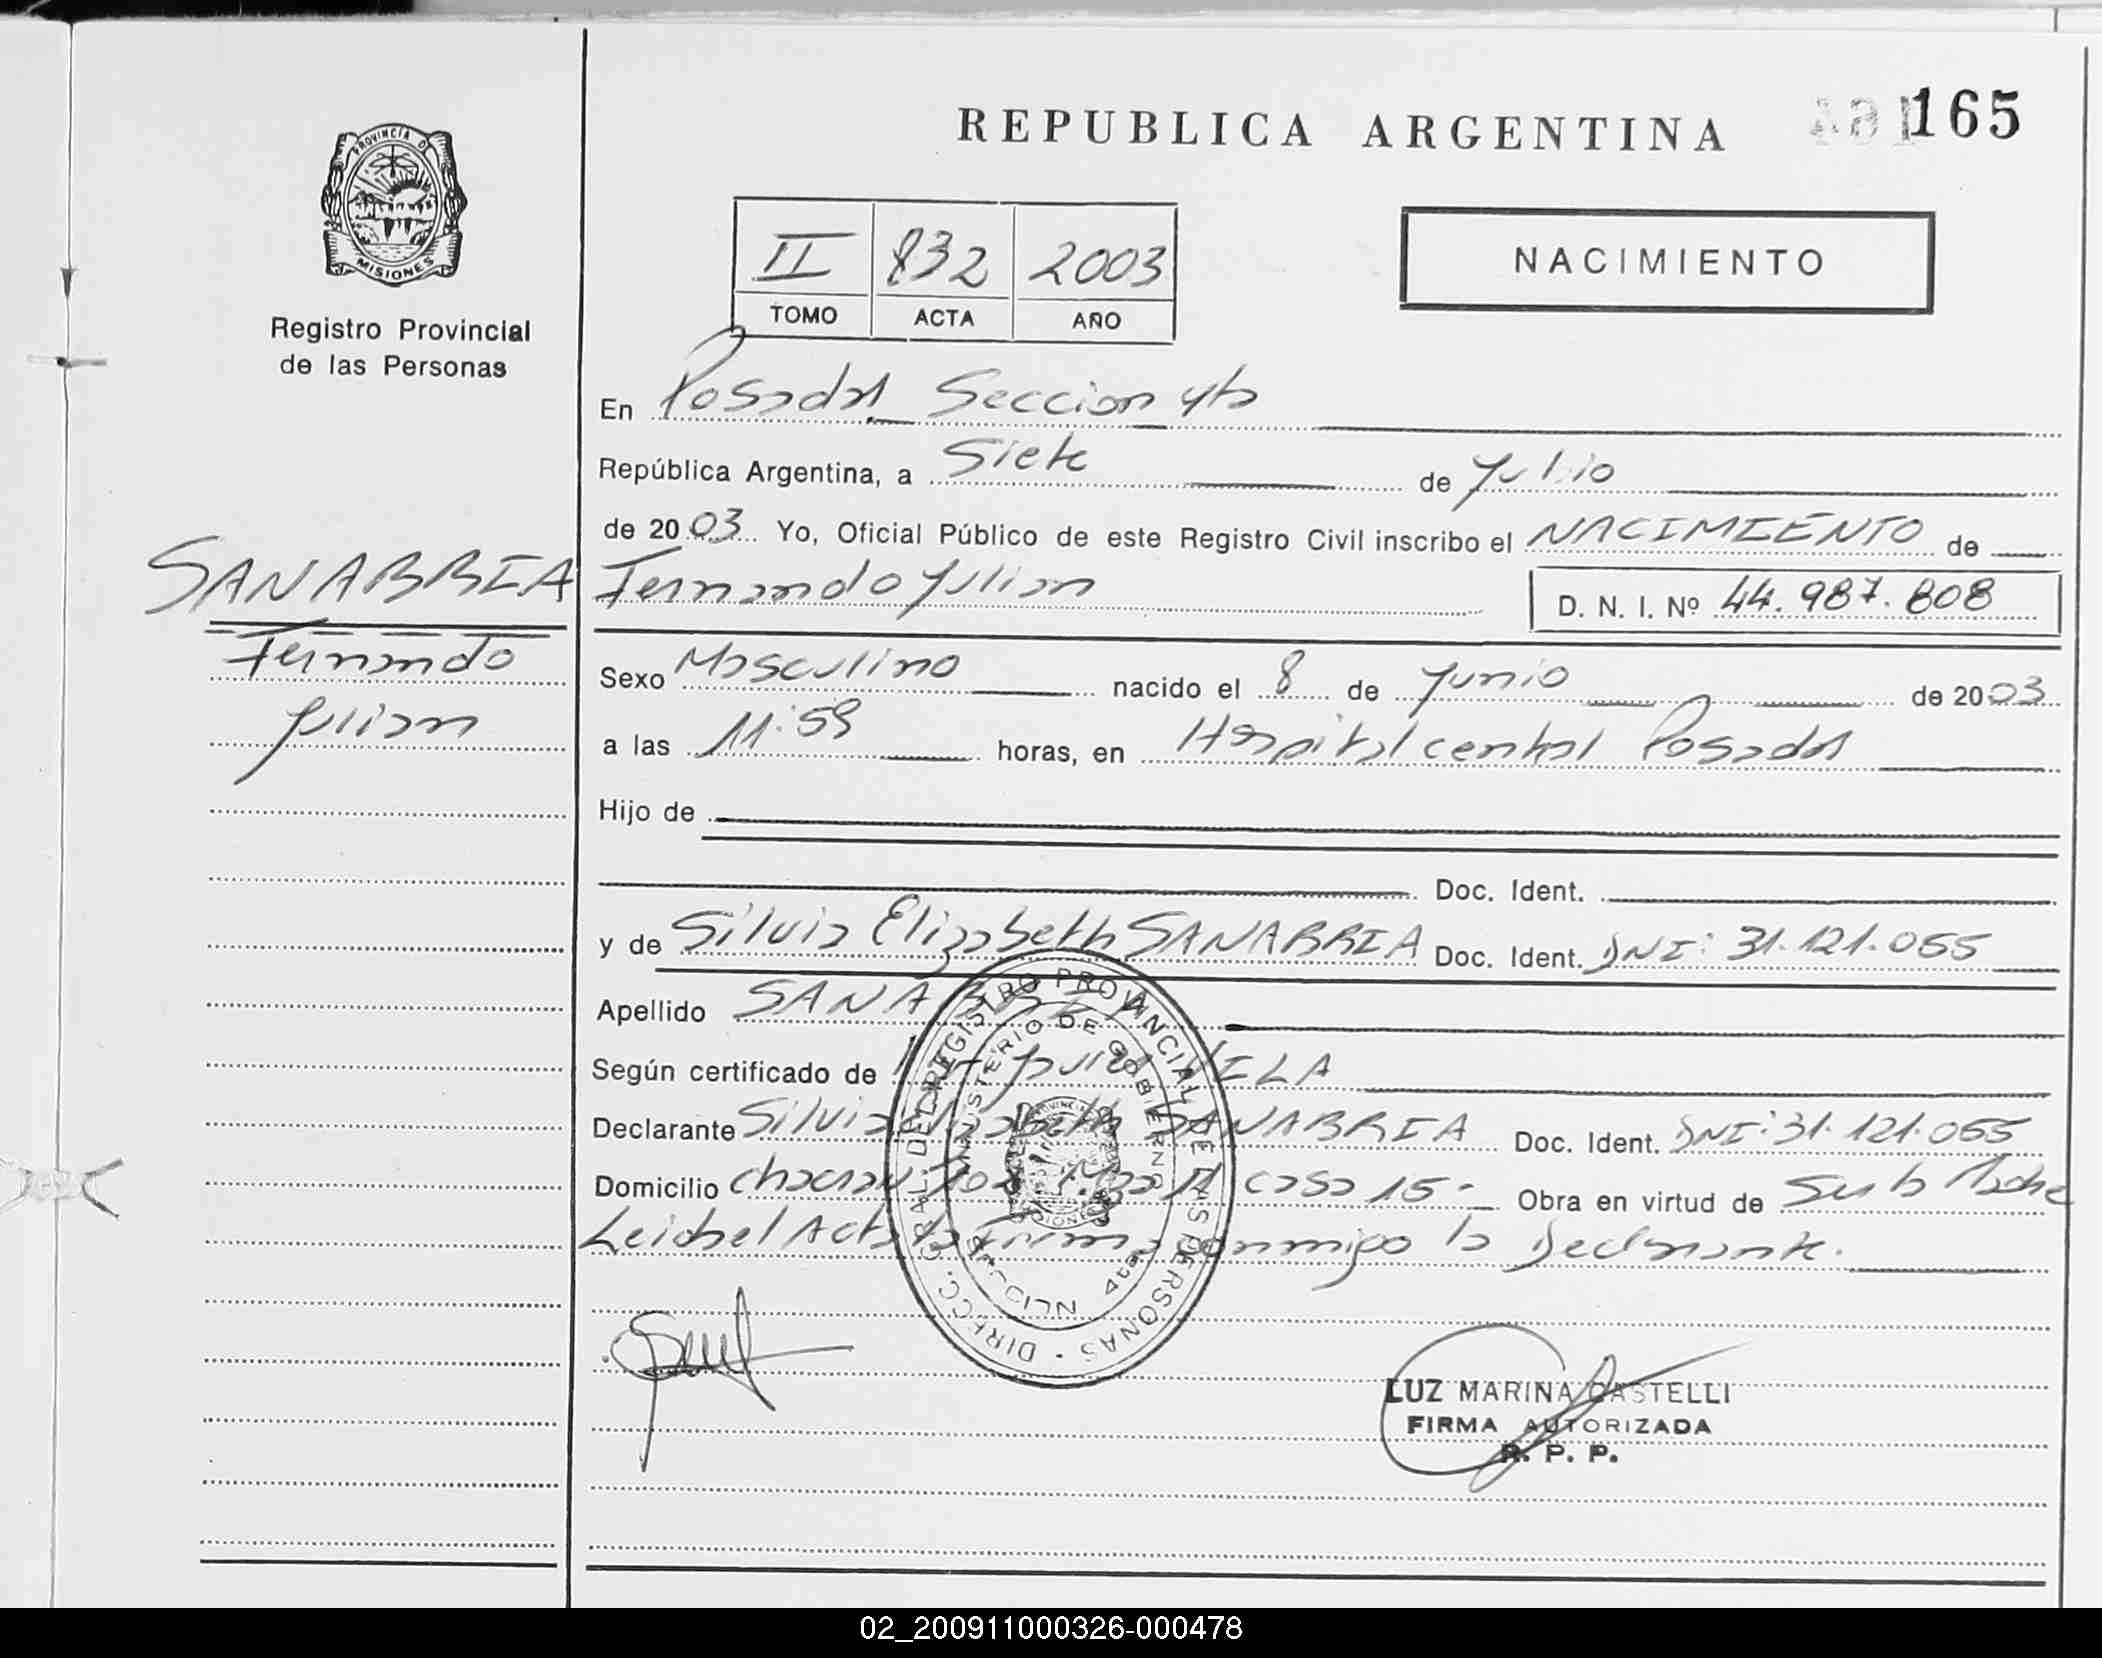 REPUBLICA ARGENTINA
165
PROVINCIA DE
MISIONES
Registro Provincial
de las Personas
II 832 2003
TOMO ACTA AÑO
NACIMIENTO
En Posadas Seccion 4ta
República Argentina, a Siete de Julio
de 2003 Yo, Oficial Público de este Registro Civil inscribo el NACIMIENTO de
SANABRIA
Fernando
Julian
Fernando Julian D. N. I. Nº 44.987.808
Sexo Masculino nacido el 8 de Junio de 2003
a las 11:59 horas, en Hospital central Posadas
Hijo de
Doc. Ident.
y de Silvia Elizabeth SANABRIA Doc. Ident. DNI: 31.121.055
Apellido SANABRIA
Según certificado de VILA
Declarante Silvia Elizabeth SANABRIA Doc. Ident. DNI: 31.121.055
Domicilio casa 15- Obra en virtud de ser la Madre
Leida el Acta la Firma conmigo la Declarante.
DIRECC. GRAL. DEL REGISTRO PROVINCIAL DE LAS PERSONAS
MINISTERIO DE GOBIERNO
LUZ MARINA CASTELLI
FIRMA AUTORIZADA
R. P. P.
02_200911000326-000478